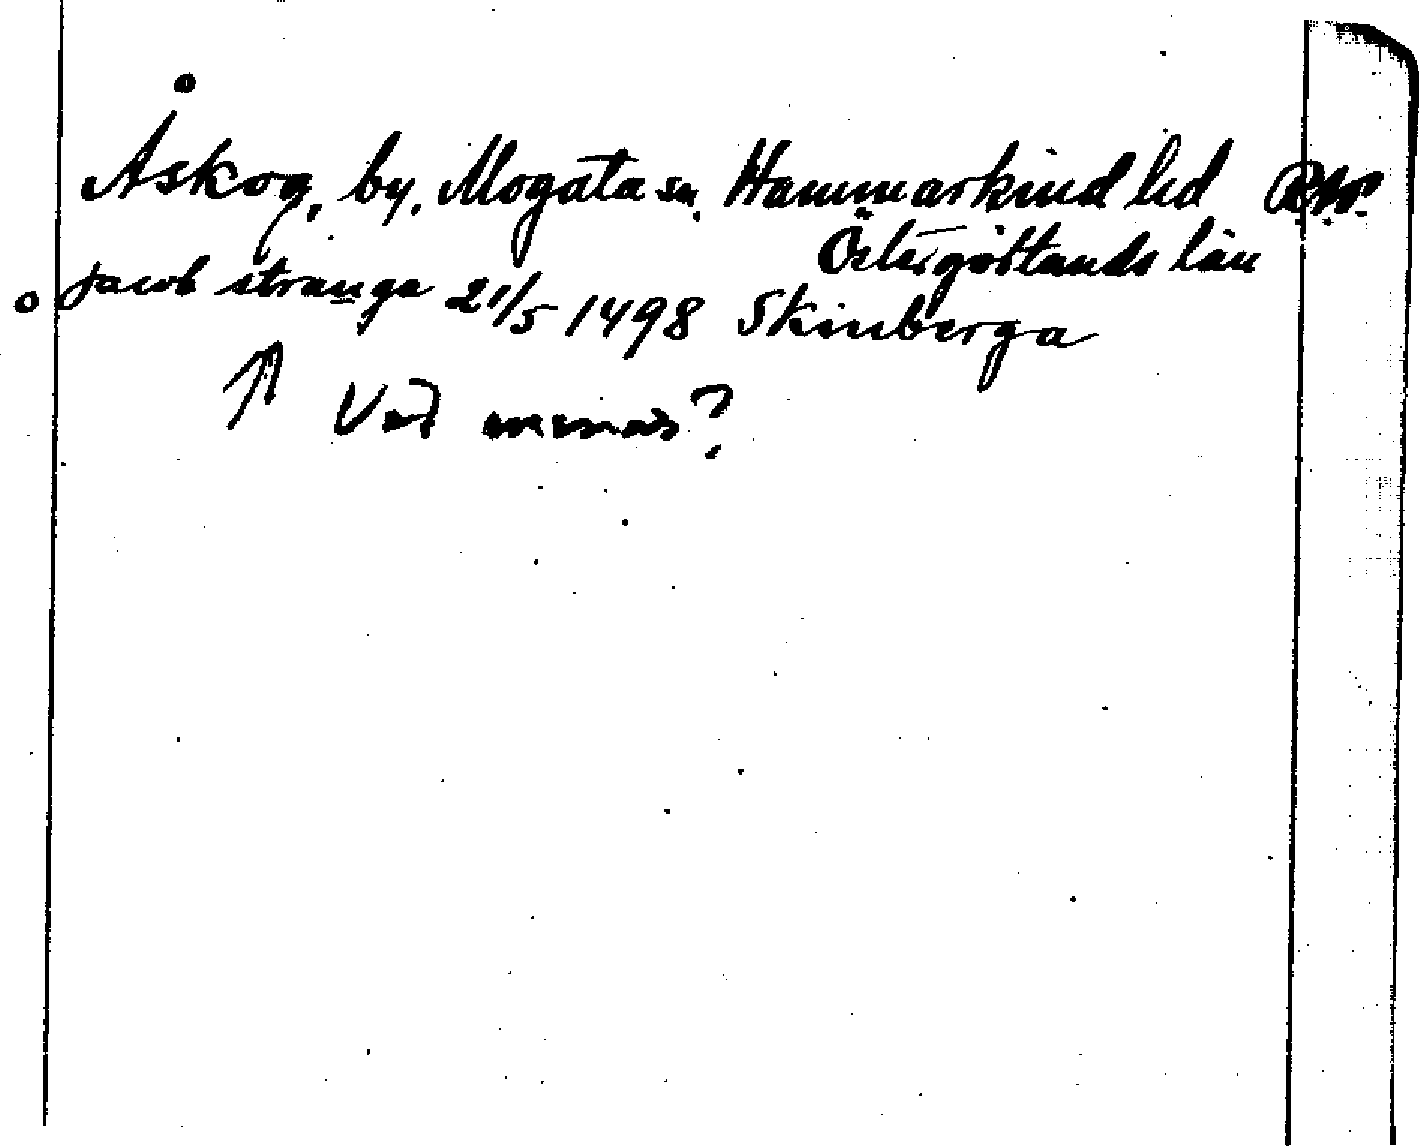 Åskog, by. Mogata sn. Hammarkind hd
Östergötlands län
Jacob stranga 21/5 1498 Skinberga
↑ Vad menas?